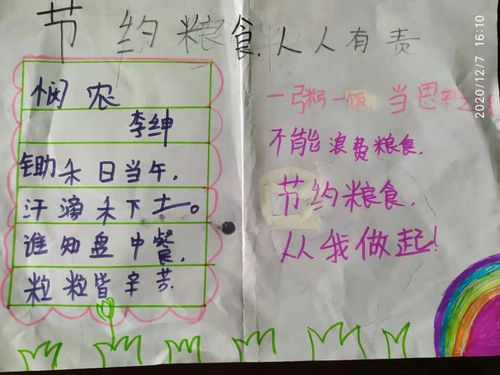 节约粮食人人有责
悯农
李绅
锄禾日当午,
汗滴禾下土。
谁知盘中餐,
粒粒皆辛苦.
一粥一饭 当思
不能浪费粮食,
节约粮食,
从我做起!
2020/12/7 16:10